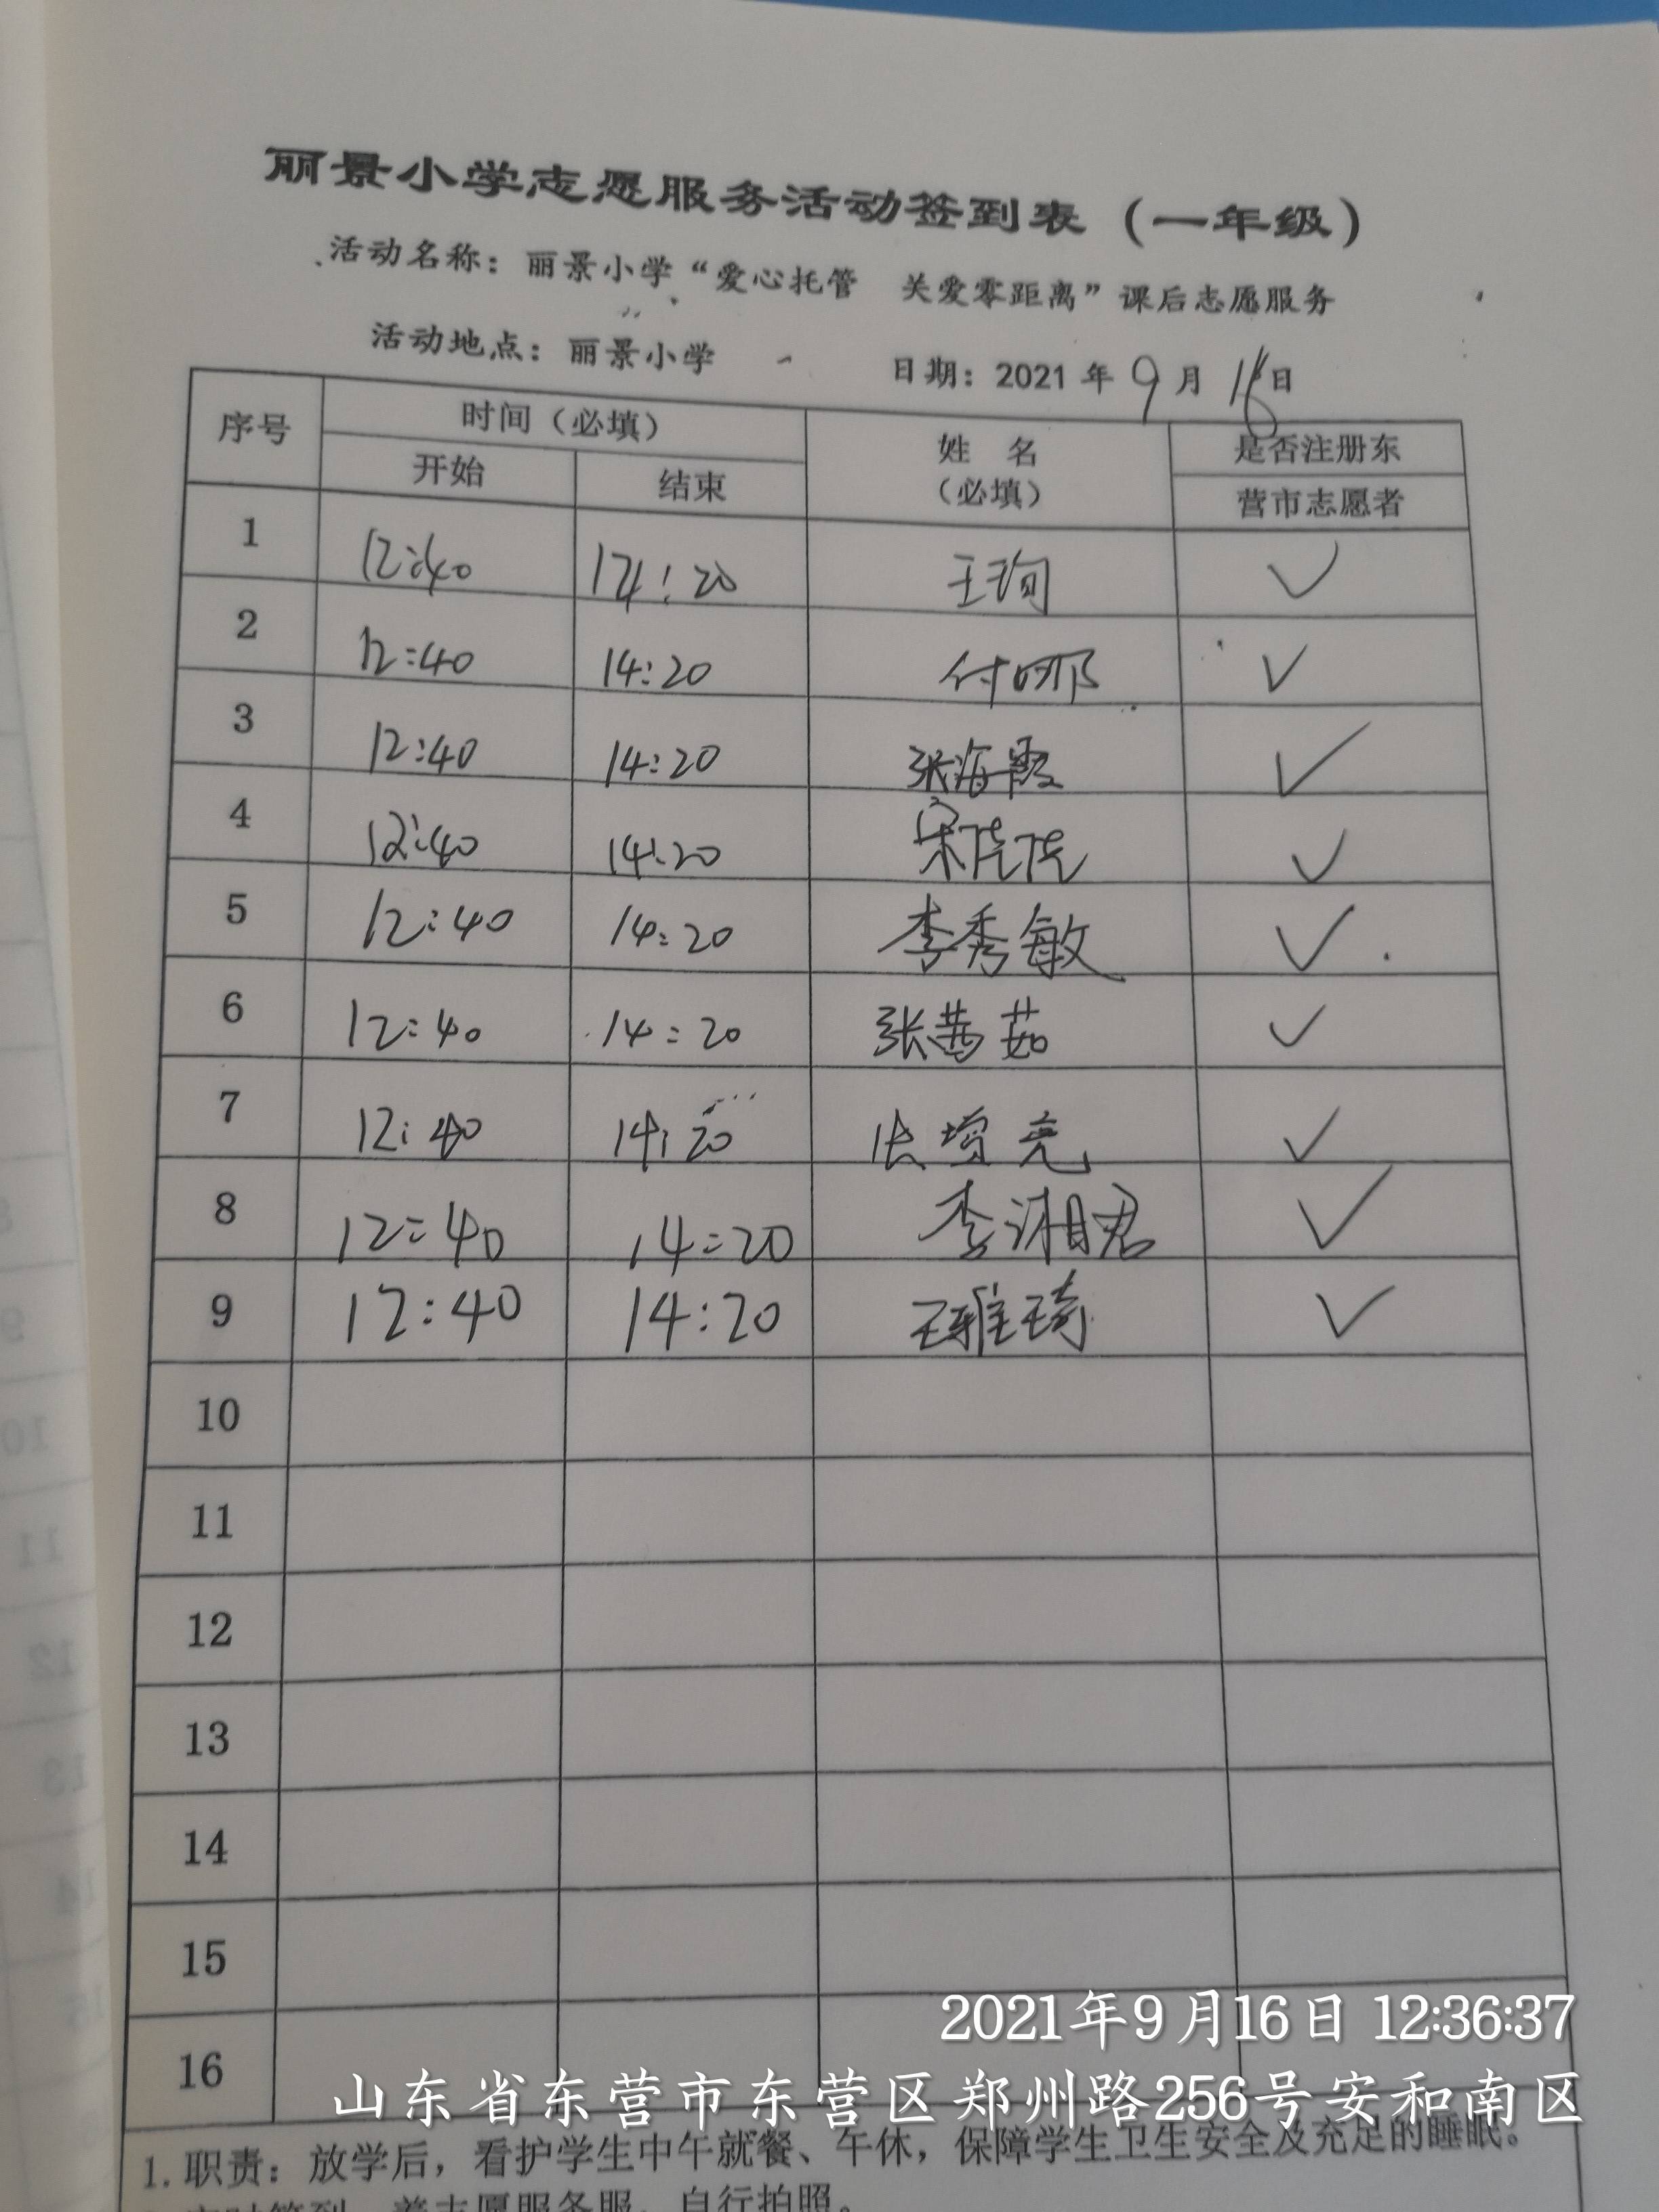 丽景小学志愿服务活动签到表（一年级）
活动名称：丽景小学“爱心托管 关爱零距离”课后志愿服务
活动地点：丽景小学 日期：2021年9月16日
序号 时间（必填） 姓 名 是否注册东
开始 结束 （必填） 营市志愿者
1 12:40 14:20 王珣 ✓
2 12:40 14:20 付娜 ✓
3 12:40 14:20 张海霞 ✓
4 12:40 14:20 宋 ✓
5 12:40 14:20 李秀敏 ✓
6 12:40 14:20 张茜茹 ✓
7 12:40 14:20 增亮 ✓
8 12:40 14:20 李湘君 ✓
9 12:40 14:20 王雅琦 ✓
10
11
12
13
14
15
16
2021年9月16日 12:36:37
山东省东营市东营区郑州路256号安和南区
1.职责：放学后，看护学生中午就餐、午休，保障学生卫生安全及充足的睡眠。
志愿服务服，自行拍照。
8
9
10
11
12
13
14
15